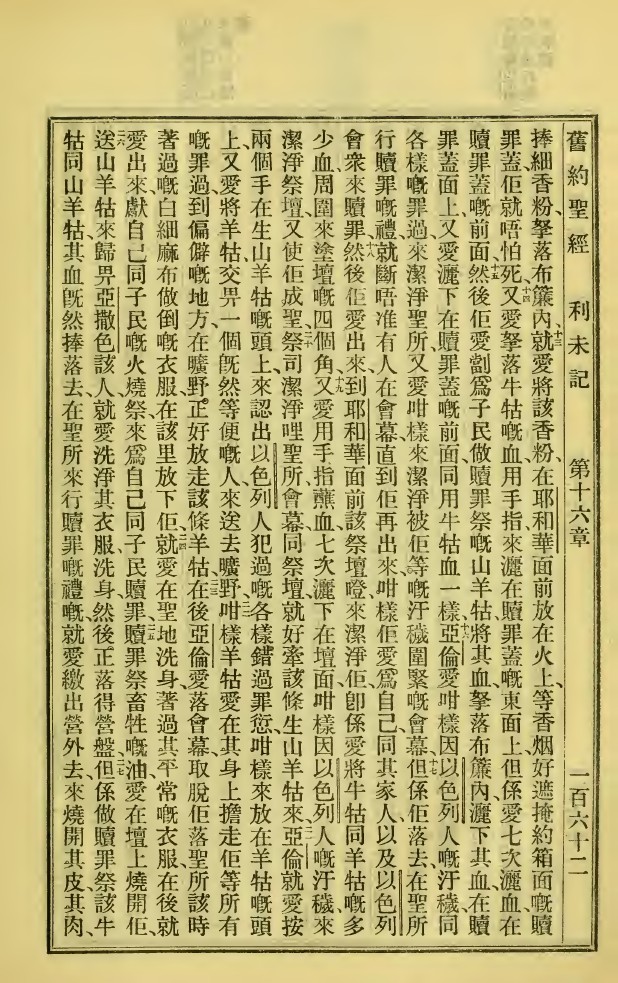 舊約聖經　利未記　第十六章　一百六十二
捧細香粉、拏落布簾內、十三就愛將該香粉、在耶和華面前放在火上、等香烟好遮掩約箱面嘅贖
罪蓋、佢就唔怕死、十四又愛拏落牛牯嘅血、用手指來灑在贖罪蓋嘅東面上、但係愛七次灑血在
贖罪蓋嘅前面、十五然後佢愛劏爲子民做贖罪祭嘅山羊牯、將其血拏落布簾內、灑下其血在贖
罪蓋面上、又愛灑下在贖罪蓋嘅前面、同用牛牯血一樣、十六亞倫愛咁樣因以色列人嘅汙穢、同
各樣嘅罪過、來潔淨聖所、又愛咁樣來潔淨被佢等嘅汙穢圍緊嘅會幕、十七但係佢落去在聖所
行贖罪嘅禮、就斷唔准有人在會幕、直到佢再出來、咁樣佢愛爲自己、同其家人、以及以色列
會衆來贖罪、十八然後佢愛出來、到耶和華面前該祭壇嶝來潔淨佢、卽係愛將牛牯同羊牯嘅多
少血、周圍來塗壇嘅四個角、十九又愛用手指蘸血七次灑下在壇面、咁樣因以色列人嘅汙穢、來
潔淨祭壇、又使佢成聖、二十祭司潔淨哩聖所、會幕、同祭壇、就好牽該條生山羊牯來、二一亞倫就愛按
兩個手在生山羊牯嘅頭上、來認出以色列人犯過嘅各樣錯過罪愆、咁樣來放在羊牯嘅頭
上、又愛將羊牯交畀一個旣然等便嘅人、來送去曠野、二二咁樣羊牯愛在其身上擔走佢等所有
嘅罪過、到偏僻嘅地方、在曠野正好放走該條羊牯、二三在後亞倫愛落會幕、取脫佢落聖所該時
著過嘅白細麻布做倒嘅衣服、在該里放下佢、二四就愛在聖地洗身、著過其平常嘅衣服、在後就
愛出來、獻自己同子民嘅火燒祭、來爲自己同子民贖罪、二五贖罪祭畜牲嘅油、愛在壇上燒開佢、
二六送山羊牯來歸畀亞撒色該人、就愛洗淨其衣服、洗身、然後正落得營盤、二七但係做贖罪祭該牛
牯同山羊牯、其血旣然捧落去在聖所、來行贖罪嘅禮嘅、就愛繳出營外去、來燒開其皮、其肉、